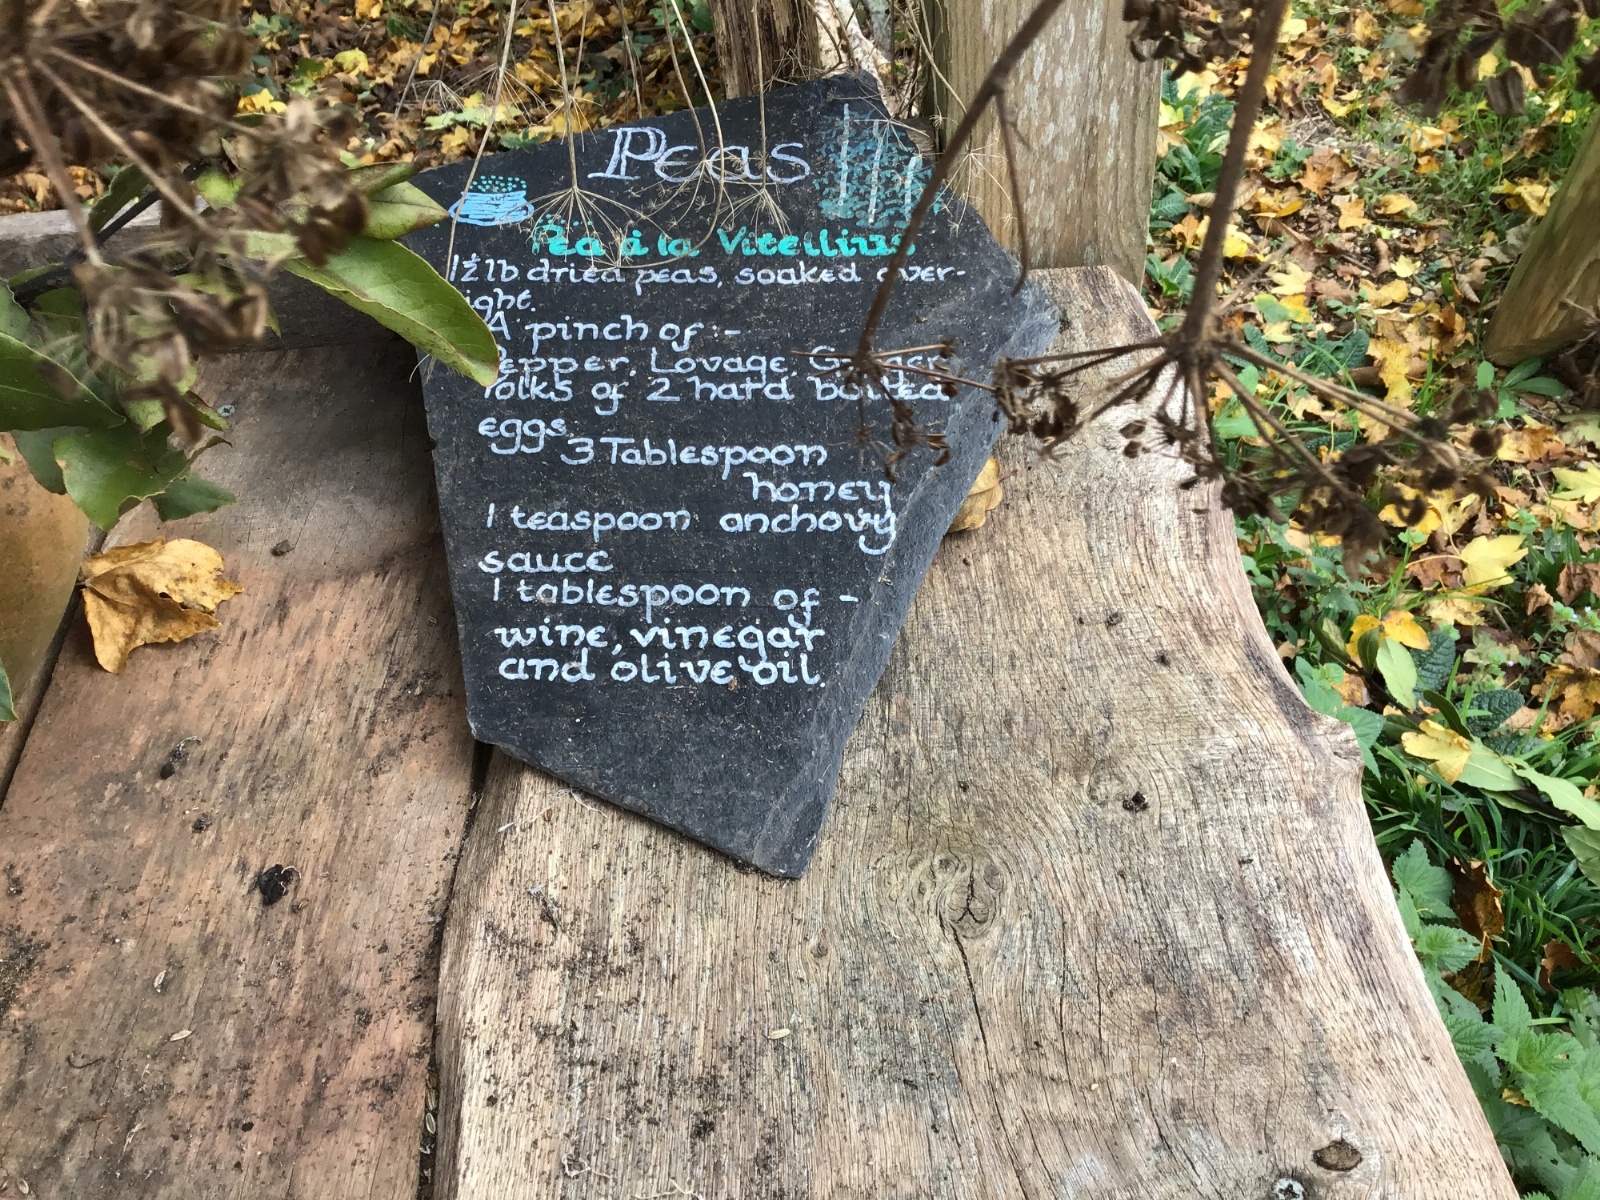 Peas
Pea á la Vitellius
1½ lb dried peas, soaked over-
ight.
A pinch of :-
Pepper, Lovage, Ginger
Yolks of 2 hard boiled
eggs.
3 Tablespoon
honey
1 teaspoon anchovy
sauce
1 tablespoon of -
wine, vinegar
and olive oil.